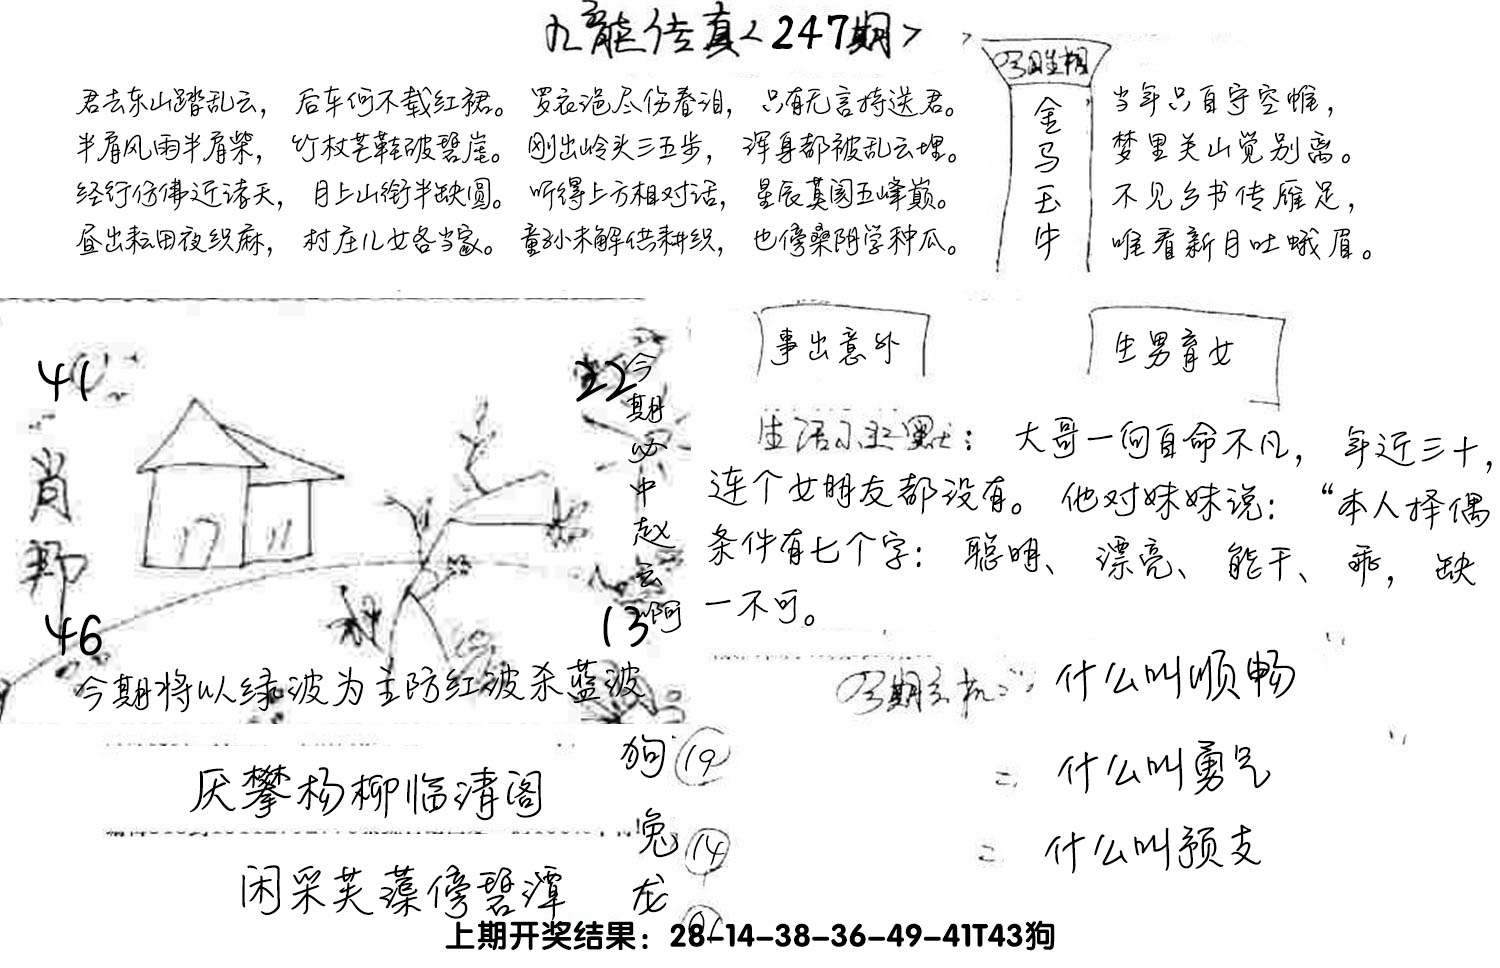 九龙传真<247期>
君去东山踏乱云，后车何不载红裙。罗衣浥尽伤春泪，只有无言持送君。
半肩风雨半肩柴，竹杖芒鞋破碧崖。刚出岭头三五步，浑身都被乱云埋。
经行仿佛近诸天，月上山衔半缺圆。听得上方相对话，星辰莫阂五峰巅。
昼出耘田夜织麻，村庄儿女各当家。童孙未解供耕织，也傍桑阴学种瓜。
金马玉牛
当年只自守空帷，
梦里关山觉别离。
不见乡书传雁足，
唯看新月吐蛾眉。
事出意外
生男育女
41
22
肖
46
13
今期必中赵云啊
今期将以绿波为主防红波杀蓝波
生活小幽默：大哥一向自命不凡，年近三十，
连个女朋友都没有。他对妹妹说：“本人择偶
条件有七个字：聪明、漂亮、能干、乖，缺
一不可。
什么叫顺畅
= 什么叫勇气
= 什么叫预支
厌攀杨柳临清阁
闲采芙蕖傍碧潭
狗 19
兔 14
龙
上期开奖结果：28-14-38-36-49-41T43狗